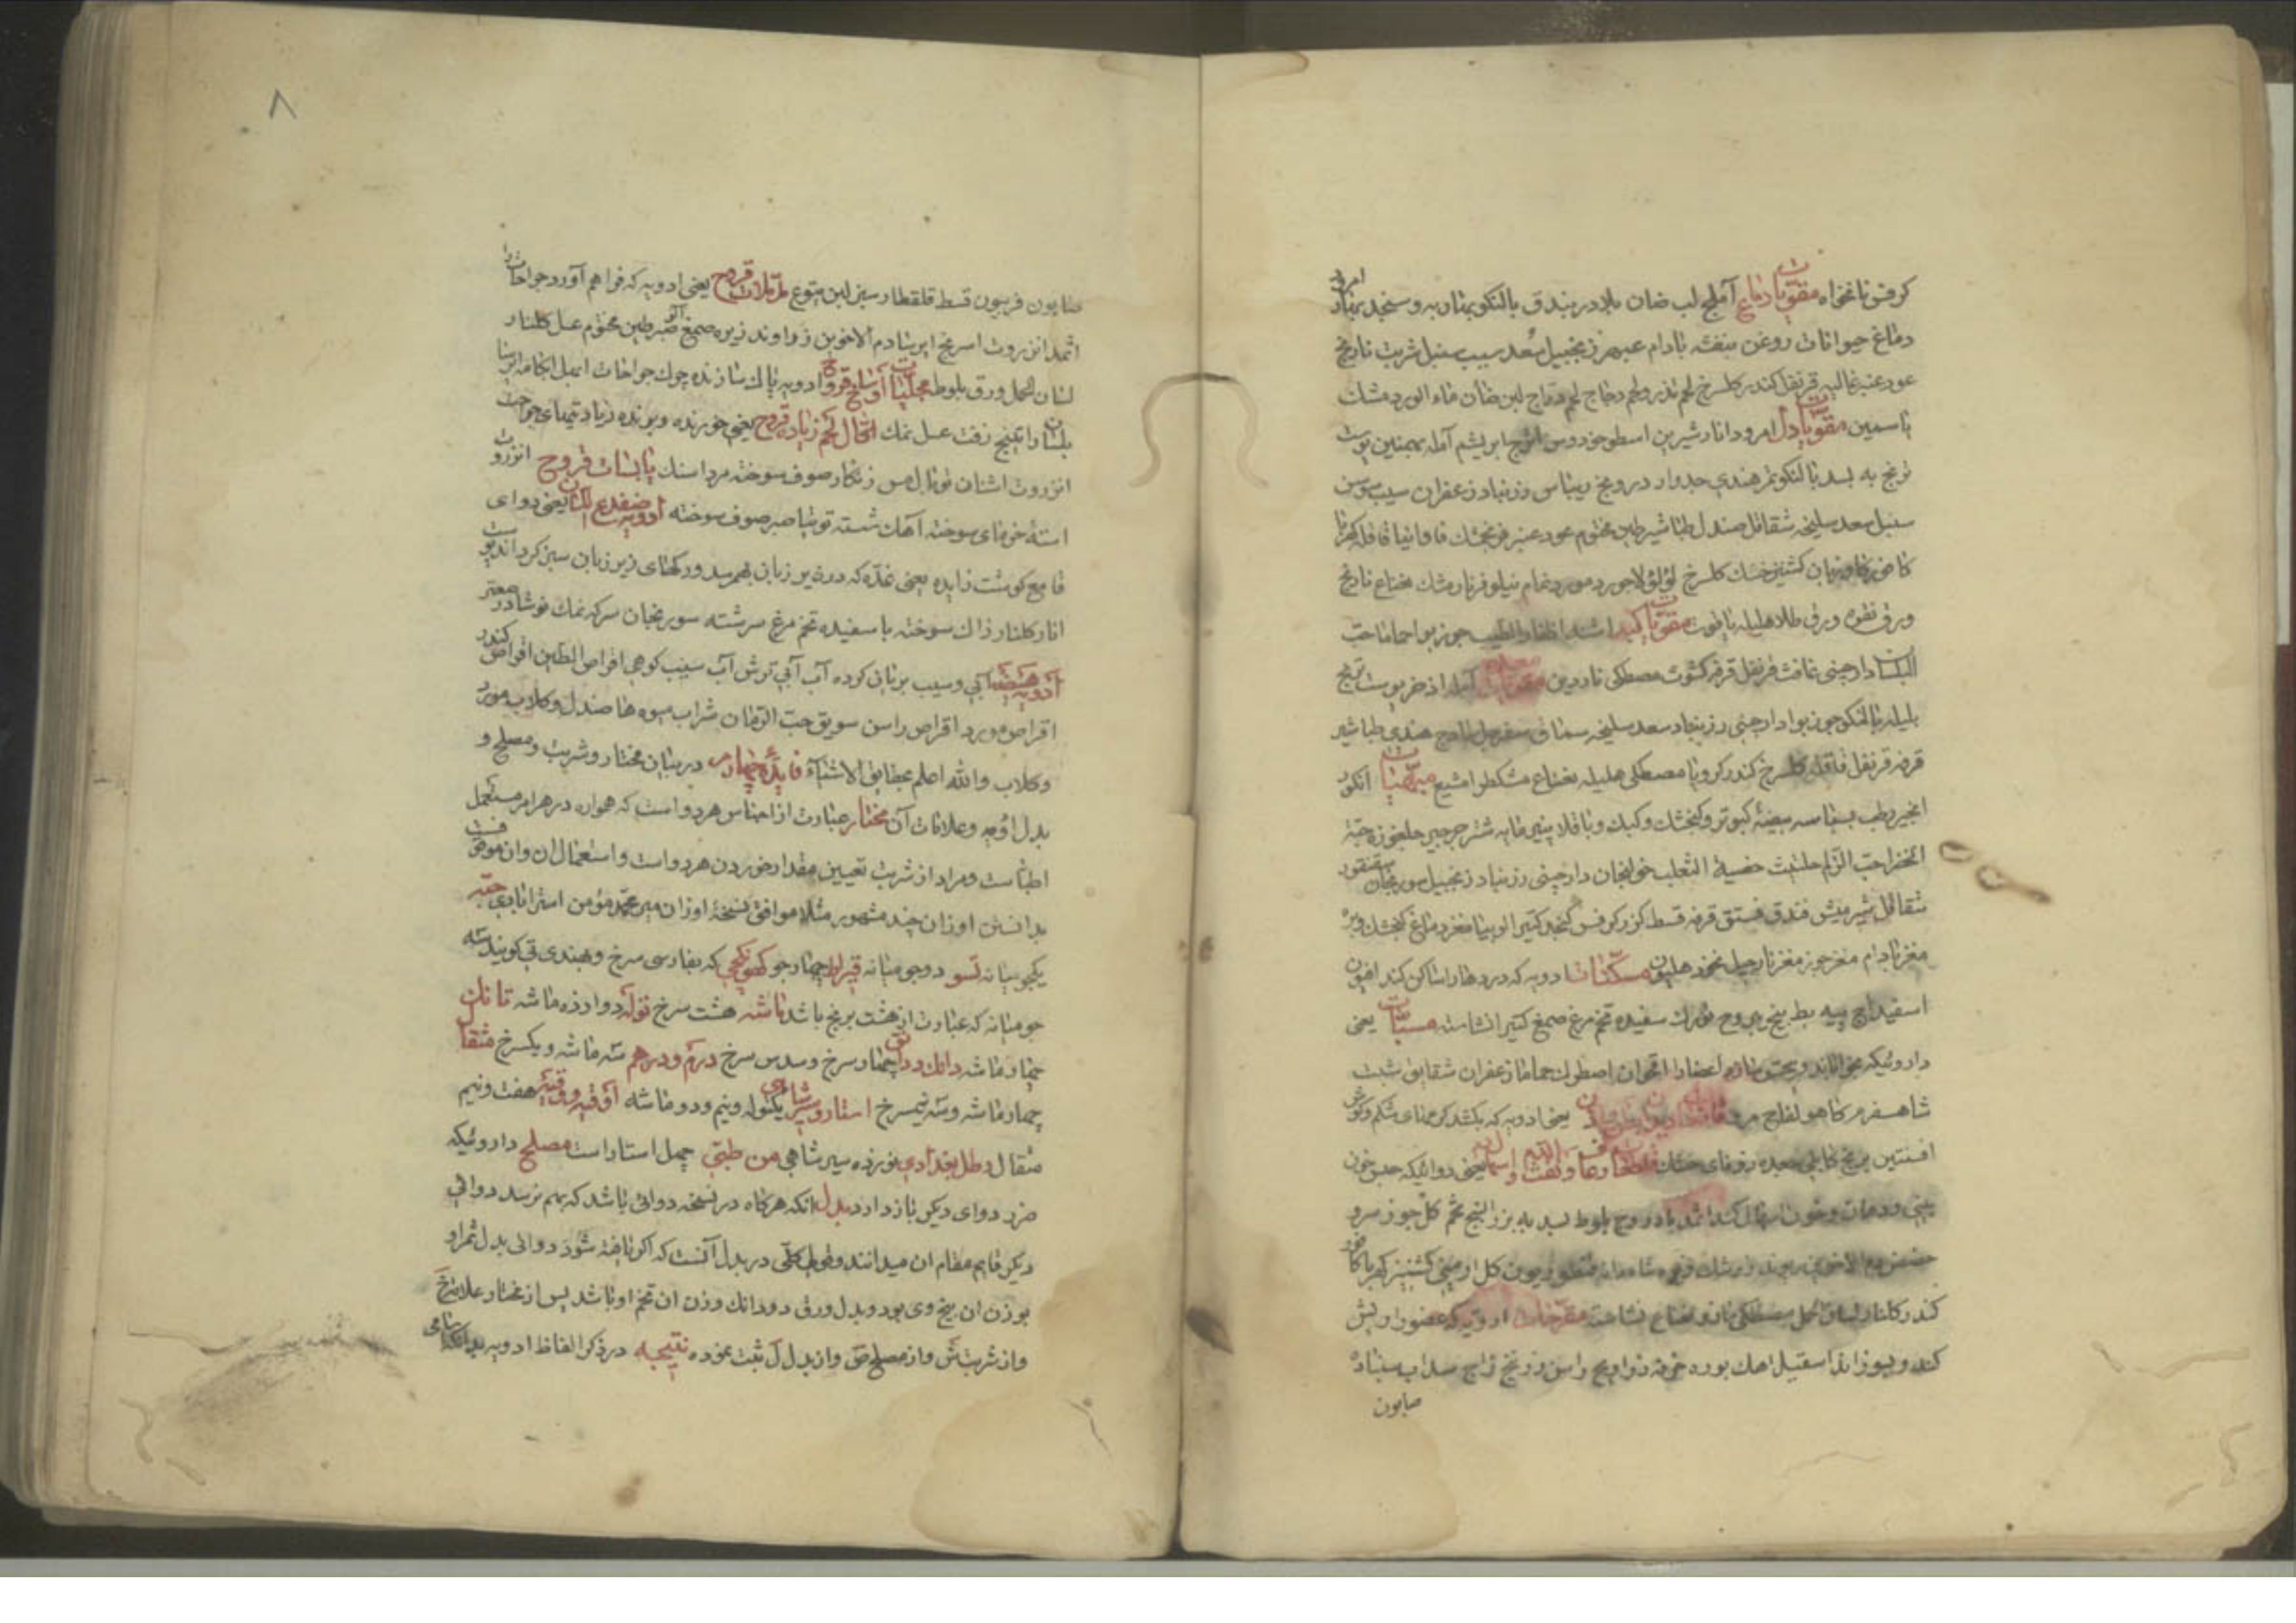 کرفس نانخواه مقویات دماغ آملج لب ضان بلادر بندق بالنکو بمثاربه و سنجد بنمار امرود
دماغ حیوانات روغن بنفشه بادام عبهر زنجبیل سعد سیب سنبل شربت نارنج
عود عنبر غالیه قرنفل کندر کلسرخ لحم تذرو لحم دجاج لحم دراج لبن ضان ماء الورد مشک
یاسمین مقویات دل امرود انار شیرین اسطوخودوس اترج ابریشم آمله بهمنین پوست
ترنج به بسد بالنکو تمرهندی جدوار درونج ریباس زرنباد زعفران سیب سوسن
سنبل سعد سلیخه شقاقل صندل طباشیر طین مختوم عود عنبر فرنجمشک فاوانیا قاقله کهربا
کافور کاوزبان کشنیز خشک کلسرخ لؤلؤ لاجورد مورد نمام نیلوفر نارمشک نعناع نارنج
ورق نقره ورق طلا هلیله یاقوت مقویات کبد اشنه اظفار الطیب جوزبوا حماما حب
البلسان دارچینی غافت قرنفل قرفه کشوث مصطکی ناردین مقویات معده آمله اذخر پوست ترنج
بلیله بالنکو جوزبوا دارچینی زرنباد سعد سلیخه سماق سفرجل ساذج هندی طباشیر
قرفه قرنفل قاقله کلسرخ کندر کرویا مصطکی هلیله نعناع مشکطرامشیع مبهیات انکور
انجیر رطب بسباسه بیضهٔ کبوتر و کنجشک و کبک و باقلا پنیرمایه شتر جرجیر جلغوزه حبة
الخضرا حب الزلم حلتیت خصیة الثعلب خولنجان دارچینی زرنباد زنجبیل سورنجان سقنقور
شقاقل شیر میش فندق فستق قرفه قسط کزر کرفس کنجد کتیرا لوبیا مغز دماغ کنجشک و بره
مغز بادام مغز جوز مغز نارجیل نخود هلیون مسکنات ادویه که دردها را ساکن کند افیون
اسفیداج پیه بط بیخ یبروح بزرک سفیده تخم مرغ صمغ کتیرا نشاسته مسبتات یعنی
داروئیکه بخواباند و بیحس سازد اقحوان اصطرک حماما زعفران شقایق شبت
شاهسفرم کاهو لفاح یعنی ادویه که بکشد کرمهای شکم و کوش
افسنتین برنج کابلی یعنی دوائیکه حبس خون
بینی و دهان و خون اسهال کند اثمد بادروج بلوط بسد به بزر البنج تخم کل جوز سرو
حضض دم الاخوین کل ارمنی کشنیز کهربا کافور
کندر کلنار لسان الحمل مصطکی نعناع نشاسته مقرحات ادویه که عضو را ریش
کند و بسوزاند اسقیل اهک بوره خردل ذراریح راسن زرنیخ زاج سداب سنباد
صابون
۸
صابون فربیون قسط قلقطار سیر لبن یتوع ملات قروح یعنی ادویه که فراهم آورد جراحات را
اثمد انزروت اسرنج ایرسا دم الاخوین زراوند زیره صمغ آلو صبر طین مختوم عسل کلنار
لسان الحمل ورق بلوط مجلیات اوساخ قروح ادویه پاک سازنده چرک جراحات ایهل ابکامه ایرسا
بلسان راتینج زفت عسل نمک اکال لحم زیاد قروح یعنی خورنده و برنده زیادتیهای جراحت
انزروت اشنان توبال مس زنکار صوف سوخته مرداسنک یابسات قروح انزروت
استه خرمای سوخته آهک شسته توتیا صبر صوف سوخته ادویه ضفدع اللسان یعنی دوای
قامع کوشت زایده یعنی غده که در زیر زبان بهم رسد و رکهای زیر زبان سبز کرداند پوست
انار کلنار زاک سوخته با سفیده تخم مرغ سرشته سورنجان سرکه نمک نوشادر صعتر
ادویه هیضه آبی و سیب بریان کرده آب آبی ترش آب سیب کوهی اقراص الطین اقراص کندر
اقراص ورد اقراص راسن سویق حب الرمان شراب میوه ها صندل و کلاب مورد
و کلاب والله اعلم بحقایق الاشیاء فایدهٔ چهارم در بیان مختار و شربت و مصلح و
بدل ادویه و علامات آن مختار عبارت از اجناس هر دوا است که همواره در هر امر مستعمل
اطباست و مراد از شربت تعیین مقدار خوردن هر دواست و استعمال ان و ان موقوفست
بدانستن اوزان چند مشهور مثلا موافق نسخهٔ اوزان میر محمد مؤمن استرابادی حبه
یکجو میانه تسو دو جو میانه قیراط چهار جو کهونکچی که بفارسی سرخ و بهندی رتی کویند سه
جو میانه که عبارت از هشت برنج باشد ماشه هشت سرخ توله دوازده ماشه تانک
چهار ماشه دانک و دانق چهار سرخ و سدس سرخ درم و درهم سه ماشه و یکسرخ مثقال
چهار ماشه و سه نیم سرخ استار و سیر شاهی یکتوله و نیم و دو ماشه اوقیه و وقیه هفت و نیم
مثقال رطل بغدادی نوزده سیر شاهی من طبی چهل استار است مصلح داروئیکه
ضرر دوای دیکر باز دارد بدل انکه هرکاه در نسخه دوائی باشد که بهم نرسد دوائی
دیکر قایم مقام ان میدانند و قول کلی در بدل آنست که اکر نایافته شود دوائی بدل ثمر او
بوزن ان بیخ وی بود و بدل ورق دو دانک وزن ان تخم او باشد پس از مختار علامت خ
و از شربت ش و از مصلح ص و از بدل ل ثبت نموده نتیجه در ذکر الفاظ ادویه بدانکه اسامی